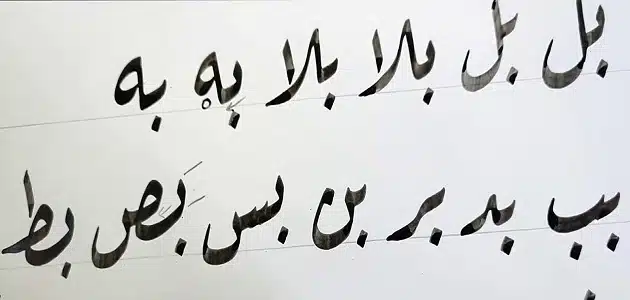 بل بل بلا بلا به به
بب بد بر بن بس بص بط